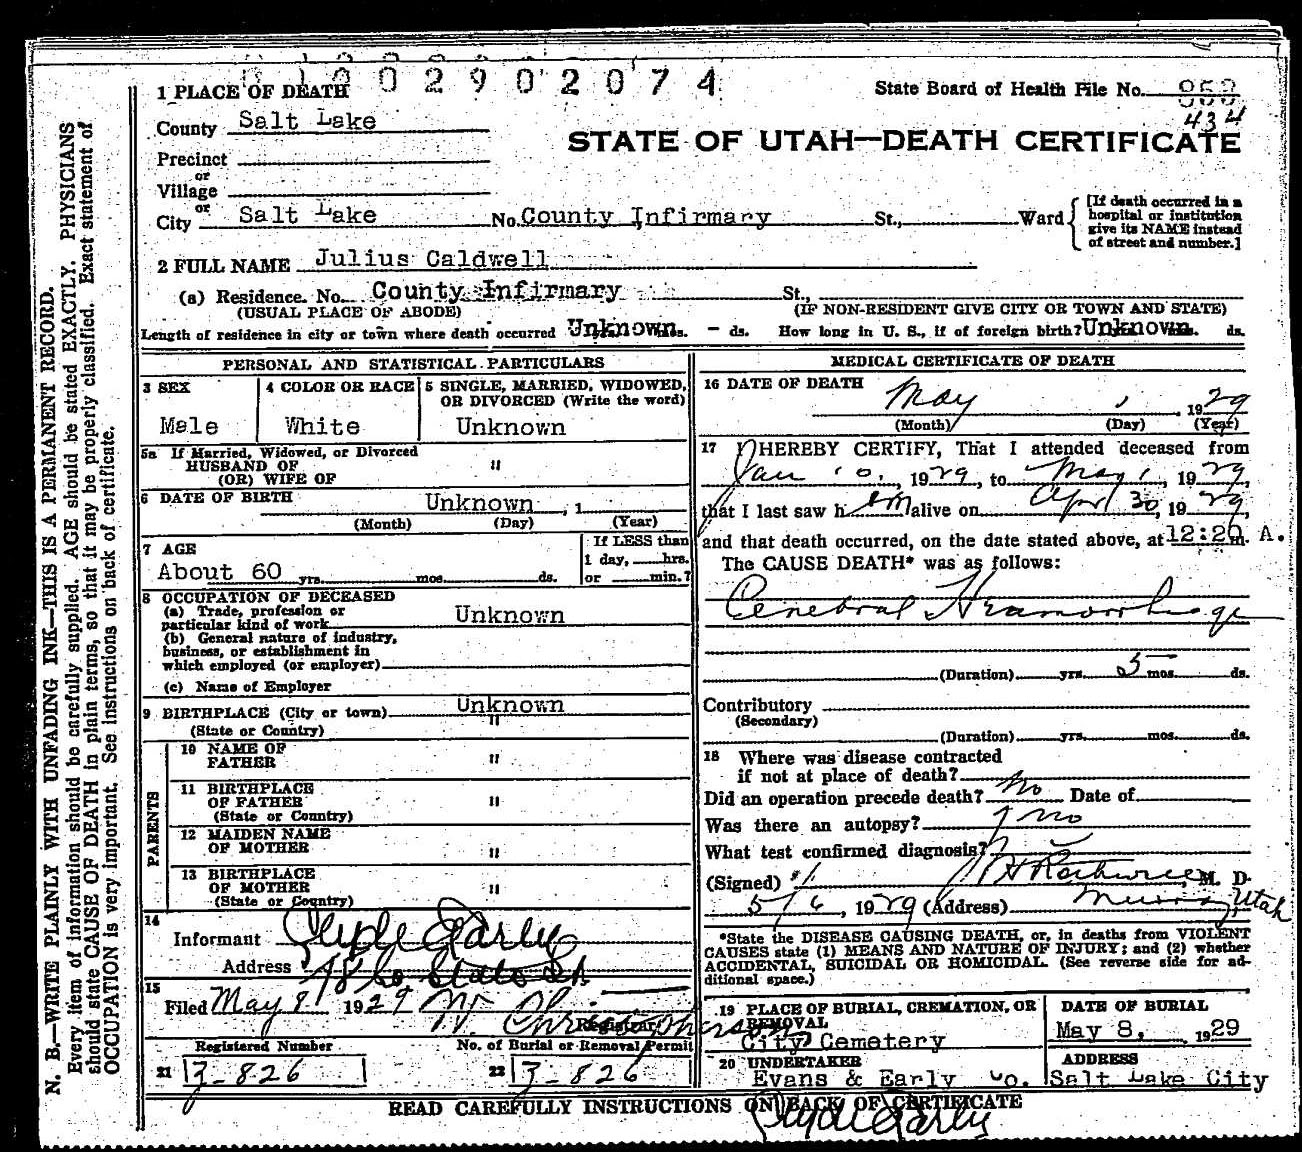 0 2 9 0 2 0 7 4
1 PLACE OF DEATH
State Board of Health File No.
434
County Salt Lake
STATE OF UTAH—DEATH CERTIFICATE
Precinct
or
Village
or
City Salt Lake No. County Infirmary St., Ward
[If death occurred in a hospital or institution give its NAME instead of street and number.]
2 FULL NAME Julius Caldwell
(a) Residence. No. County Infirmary St.,
(USUAL PLACE OF ABODE) (IF NON-RESIDENT GIVE CITY OR TOWN AND STATE)
Length of residence in city or town where death occurred Unknown mos. - ds. How long in U. S., if of foreign birth? Unknown mos. ds.
PERSONAL AND STATISTICAL PARTICULARS
3 SEX
Male
4 COLOR OR RACE
White
5 SINGLE, MARRIED, WIDOWED,
OR DIVORCED (Write the word)
Unknown
5a If Married, Widowed, or Divorced
HUSBAND OF
(OR) WIFE OF "
6 DATE OF BIRTH Unknown , 1
(Month) (Day) (Year)
7 AGE
About 60 yrs. mos. ds.
If LESS than
1 day, hrs.
or min.?
8 OCCUPATION OF DECEASED
(a) Trade, profession or
particular kind of work Unknown
(b) General nature of industry,
business, or establishment in
which employed (or employer)
(c) Name of Employer
9 BIRTHPLACE (City or town) Unknown
(State or Country) "
PARENTS
10 NAME OF
FATHER "
11 BIRTHPLACE
OF FATHER "
(State or Country)
12 MAIDEN NAME
OF MOTHER "
13 BIRTHPLACE
OF MOTHER "
(State or Country)
14
Informant Clyde Early
Address 48 So State St
15
Filed May 8 1929 W. Christopherson
Registrar
Registered Number
21 3-826
No. of Burial or Removal Permit
22 3-826
MEDICAL CERTIFICATE OF DEATH
16 DATE OF DEATH
May 1, 1929
(Month) (Day) (Year)
17 I HEREBY CERTIFY, That I attended deceased from
Jan 1929, to May 1, 1929,
that I last saw him alive on Apr 30, 1929,
and that death occurred, on the date stated above, at 12:20 m. A.
The CAUSE DEATH* was as follows:
Cerebral Hæmorrhage
(Duration) yrs. 5 mos. ds.
Contributory
(Secondary)
(Duration) yrs. mos. ds.
18 Where was disease contracted
if not at place of death?
Did an operation precede death? No Date of
Was there an autopsy? no
What test confirmed diagnosis?
(Signed) M. D.
5/6, 1929 (Address) Murray, Utah
*State the DISEASE CAUSING DEATH, or, in deaths from VIOLENT
CAUSES state (1) MEANS AND NATURE OF INJURY; and (2) whether
ACCIDENTAL, SUICIDAL OR HOMICIDAL. (See reverse side for ad-
ditional space.)
19 PLACE OF BURIAL, CREMATION, OR
REMOVAL
City Cemetery
DATE OF BURIAL
May 8, 1929
20 UNDERTAKER
Evans & Early Co.
ADDRESS
Salt Lake City
READ CAREFULLY INSTRUCTIONS ON BACK OF CERTIFICATE
Clyde Early
N. B.—WRITE PLAINLY WITH UNFADING INK—THIS IS A PERMANENT RECORD.
Every item of information should be carefully supplied. AGE should be stated EXACTLY. PHYSICIANS
should state CAUSE OF DEATH in plain terms, so that it may be properly classified. Exact statement of
OCCUPATION is very important. See instructions on back of certificate.